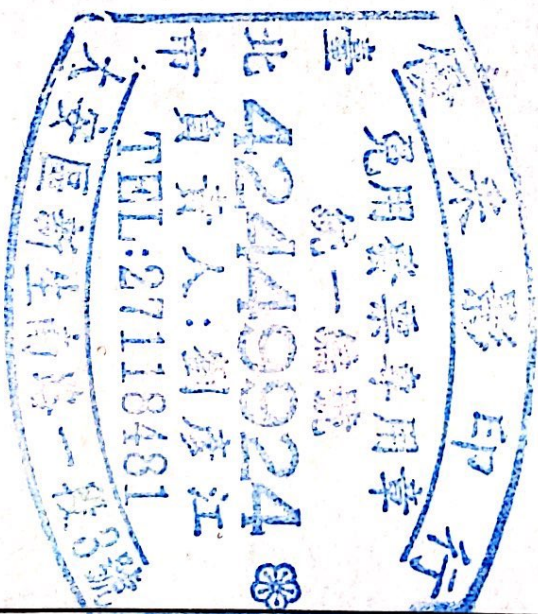 影印行
免用發票專用章
統一編號
42449924
負責人:劉彥江
TEL:27118481
臺北市
大安區新生南路一段3號